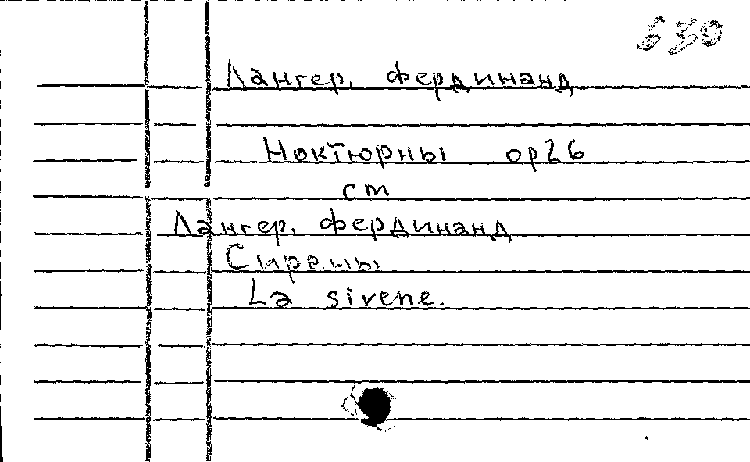 630
Лангер, Фердинанд
Ноктюрны ор26
см
Лангер, Фердинанд
Сирены
La sirene.